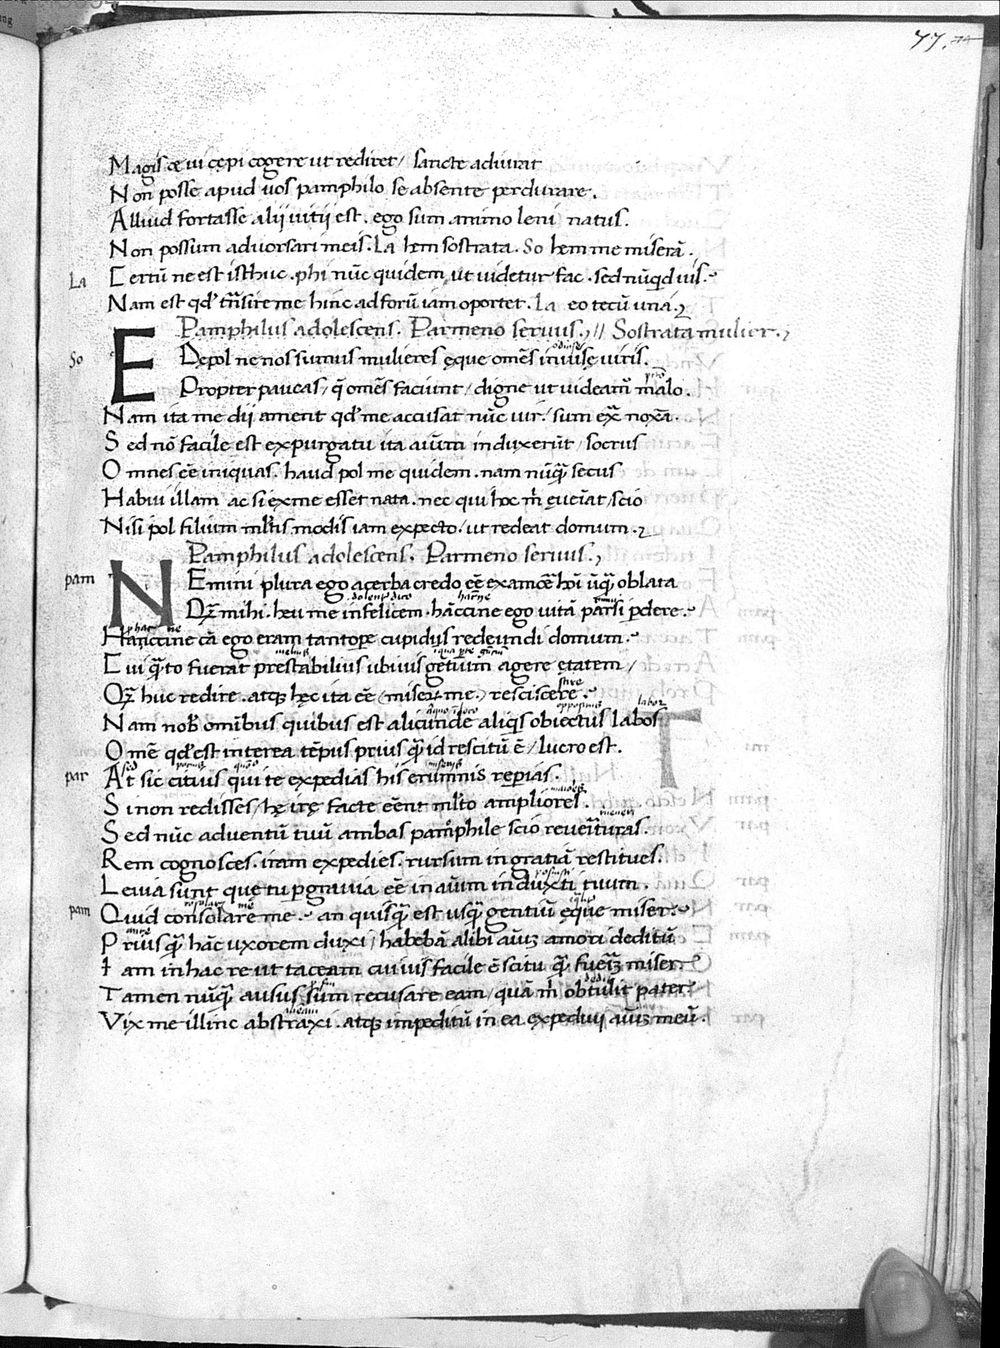 77. 74
Magis cę ui cępi cogere ut rediret / sancte adiurat
Non posse apud uos pamphilo se absente perdurare.
Alliud fortasse alii uitii est. ego sum animo leni natus.
Non possum aduorsari meis. La hem sostrata. So hem me miserā.
La Certū ne est isthuc. phi nūc quidem ut uidetur fac. sed nūqd uis.
Nam est qd' trāsire me hinc ad forū iam oportet. La eo tecū una.
Pamphilus adolescens. Parmeno seruus. // Sostrata mulier.
So EDepol ne nos sumus mulieres ęque omēs inuisę uiris.
Propter paucas / q̄ omēs faciunt / digne ut uideam̄ malo.
Nam ita me dii ament qd' me accusat nūc uir / sum ex̄ noxā.
Sed nō facile est expurgatu ita aīum induxerūt / socrus
Omnes eē iniquas. haud pol me quidem. nam nūq̄ secus
Habui illam ac si ex me esset nata. nec qui hoc m̄ eueīat / scio
Nisi pol filium mltis modis iam expecto / ut redeat domum.
Pamphilus adolescens. Parmeno seruus.
pam NEmini plura ego acerba credo eē ex amoē hoī ūq̄ oblata
Qz mihi. heu me infelicem. hānccine ego uitā parsi pdere.
Hanccine cā ego eram tantope cupidus redeundi domum.
Cui q̄to fuerat prestabilius ubiuis gētium agere etatem /
Qz huc redire. atqz hęc ita eē / miserū me / resciscere.
Nam nob omībus quibus est alicunde aliqs obiectus labos
Omē qd' est interea tēpus prius q̄ id rescitū ē / lucro est.
par At sic citius qui te expedias his erumnis reperias.
Si non redisses / hę irę facte eēnt mlto ampliores.
Sed nūc aduentū tuū ambas pamphile scio reueīturas.
Rem cognosces. iram expedies. rursum in gratiā restitues.
Leuia sunt que tu pgrauia eē in aīum induxti tuum.
pam Quid consolare me. an quisq̄ est usq̄ gentiū eque miser.
Prius q̄ hāc uxorem duxi / habebā alibi aīuz amori deditū
Iam in hac re ut taceam cuiuis facile ē scitu q̄ fuerīz miser.
Tamen nūq̄ ausus sum recusare eam / quā m̄ obtulit pater.
Vix me illinc abstraxi. atqz impeditū in ea expediui aīuz meū.